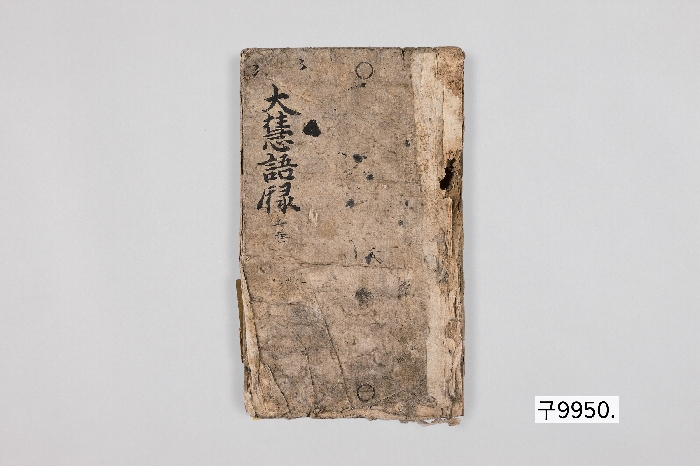 大慧語录
구9950.